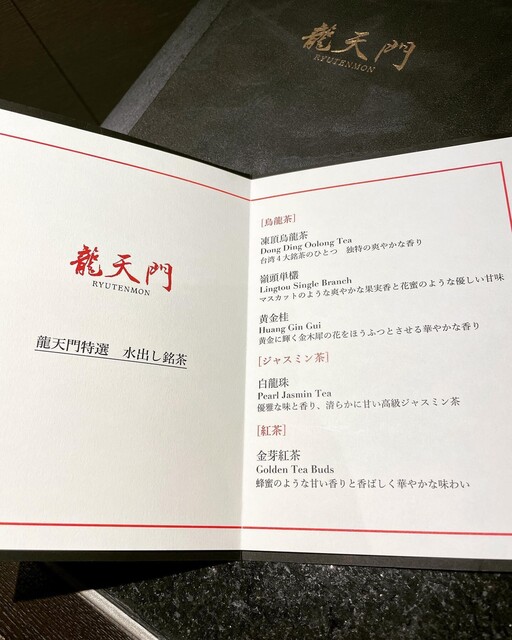 龍天門
RYUTENMON
龍天門
RYUTENMON
龍天門特選 水出し銘茶
[烏龍茶]
凍頂烏龍茶
Dong Ding Oolong Tea
台湾4大銘茶のひとつ 独特の爽やかな香り
嶺頭単欉
Lingtou Single Branch
マスカットのような爽やかな果実香と花蜜のような優しい甘味
黄金桂
Huang Gin Gui
黄金に輝く金木犀の花をほうふつとさせる華やかな香り
[ジャスミン茶]
白龍珠
Pearl Jasmin Tea
優雅な味と香り、清らかに甘い高級ジャスミン茶
[紅茶]
金芽紅茶
Golden Tea Buds
蜂蜜のような甘い香りと香ばしく華やかな味わい